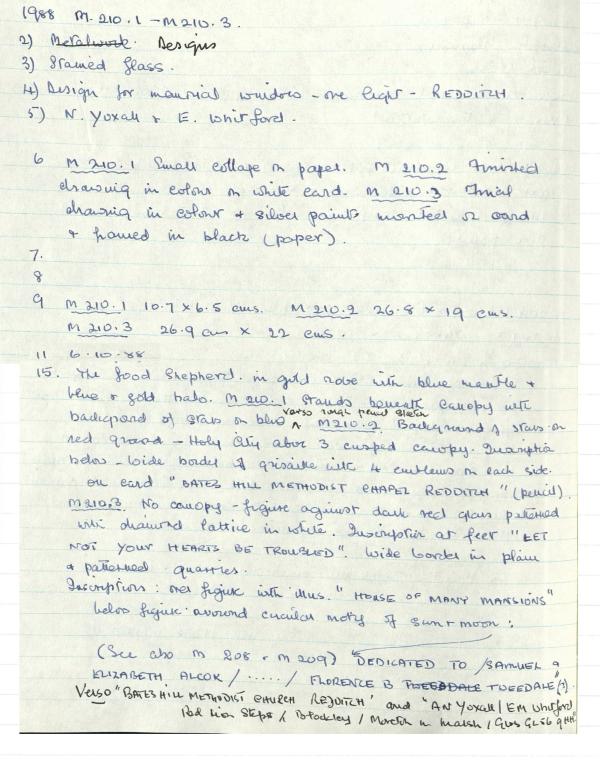 1988 M.210.1 - M210.3.
2) Metalwork. Designs
3) Stained Glass.
4) Design for memorial window - one light - REDDITCH.
5) N. Yoxall & E. Whitford.
6 M 210.1 Small collage on paper. M 210.2 Finished
drawing in colour on white card. M 210.3 Final
drawing in colour & silver paint mounted on card
& framed in black (paper).
7.
8
9 M 210.1 10.7 x 6.5 cms. M 210.2 26.8 x 19 cms.
M 210.3 26.9 cms x 22 cms.
11 6.10.88
15. The Good Shepherd. in gold robe with blue mantle &
blue & gold halo. M 210.1 Stands beneath canopy with
background of stars on blue verso rough pencil sketch M 210.2. Background of stars on
red ground - Holy City above 3 cusped canopy. Inscription
below - wide border of grisaille with 4 emblems on each side.
on card "BATES HILL METHODIST CHAPEL REDDITCH" (pencil).
M210.3. No canopy - figure against dark red glass patterned
with diamond lattice in white. Inscription at feet "LET
NOT YOUR HEARTS BE TROUBLED". Wide border in plain
& patterned quarries.
Inscriptions: over figure with illus. "HOUSE OF MANY MANSIONS"
below figure around circular motif of sun & moon:
(See also M 208 & M 209) DEDICATED TO / SAMUEL &
ELIZABETH ALCOK / ..... / FLORENCE B TWEEDALE TWEEDALE (?).
Verso "BATES HILL METHODIST CHURCH REDDITCH' and "AN Yoxall / EM Whitford
Red Lion Steps / Blockley / Moreton in Marsh / Glos GL56 9HH"